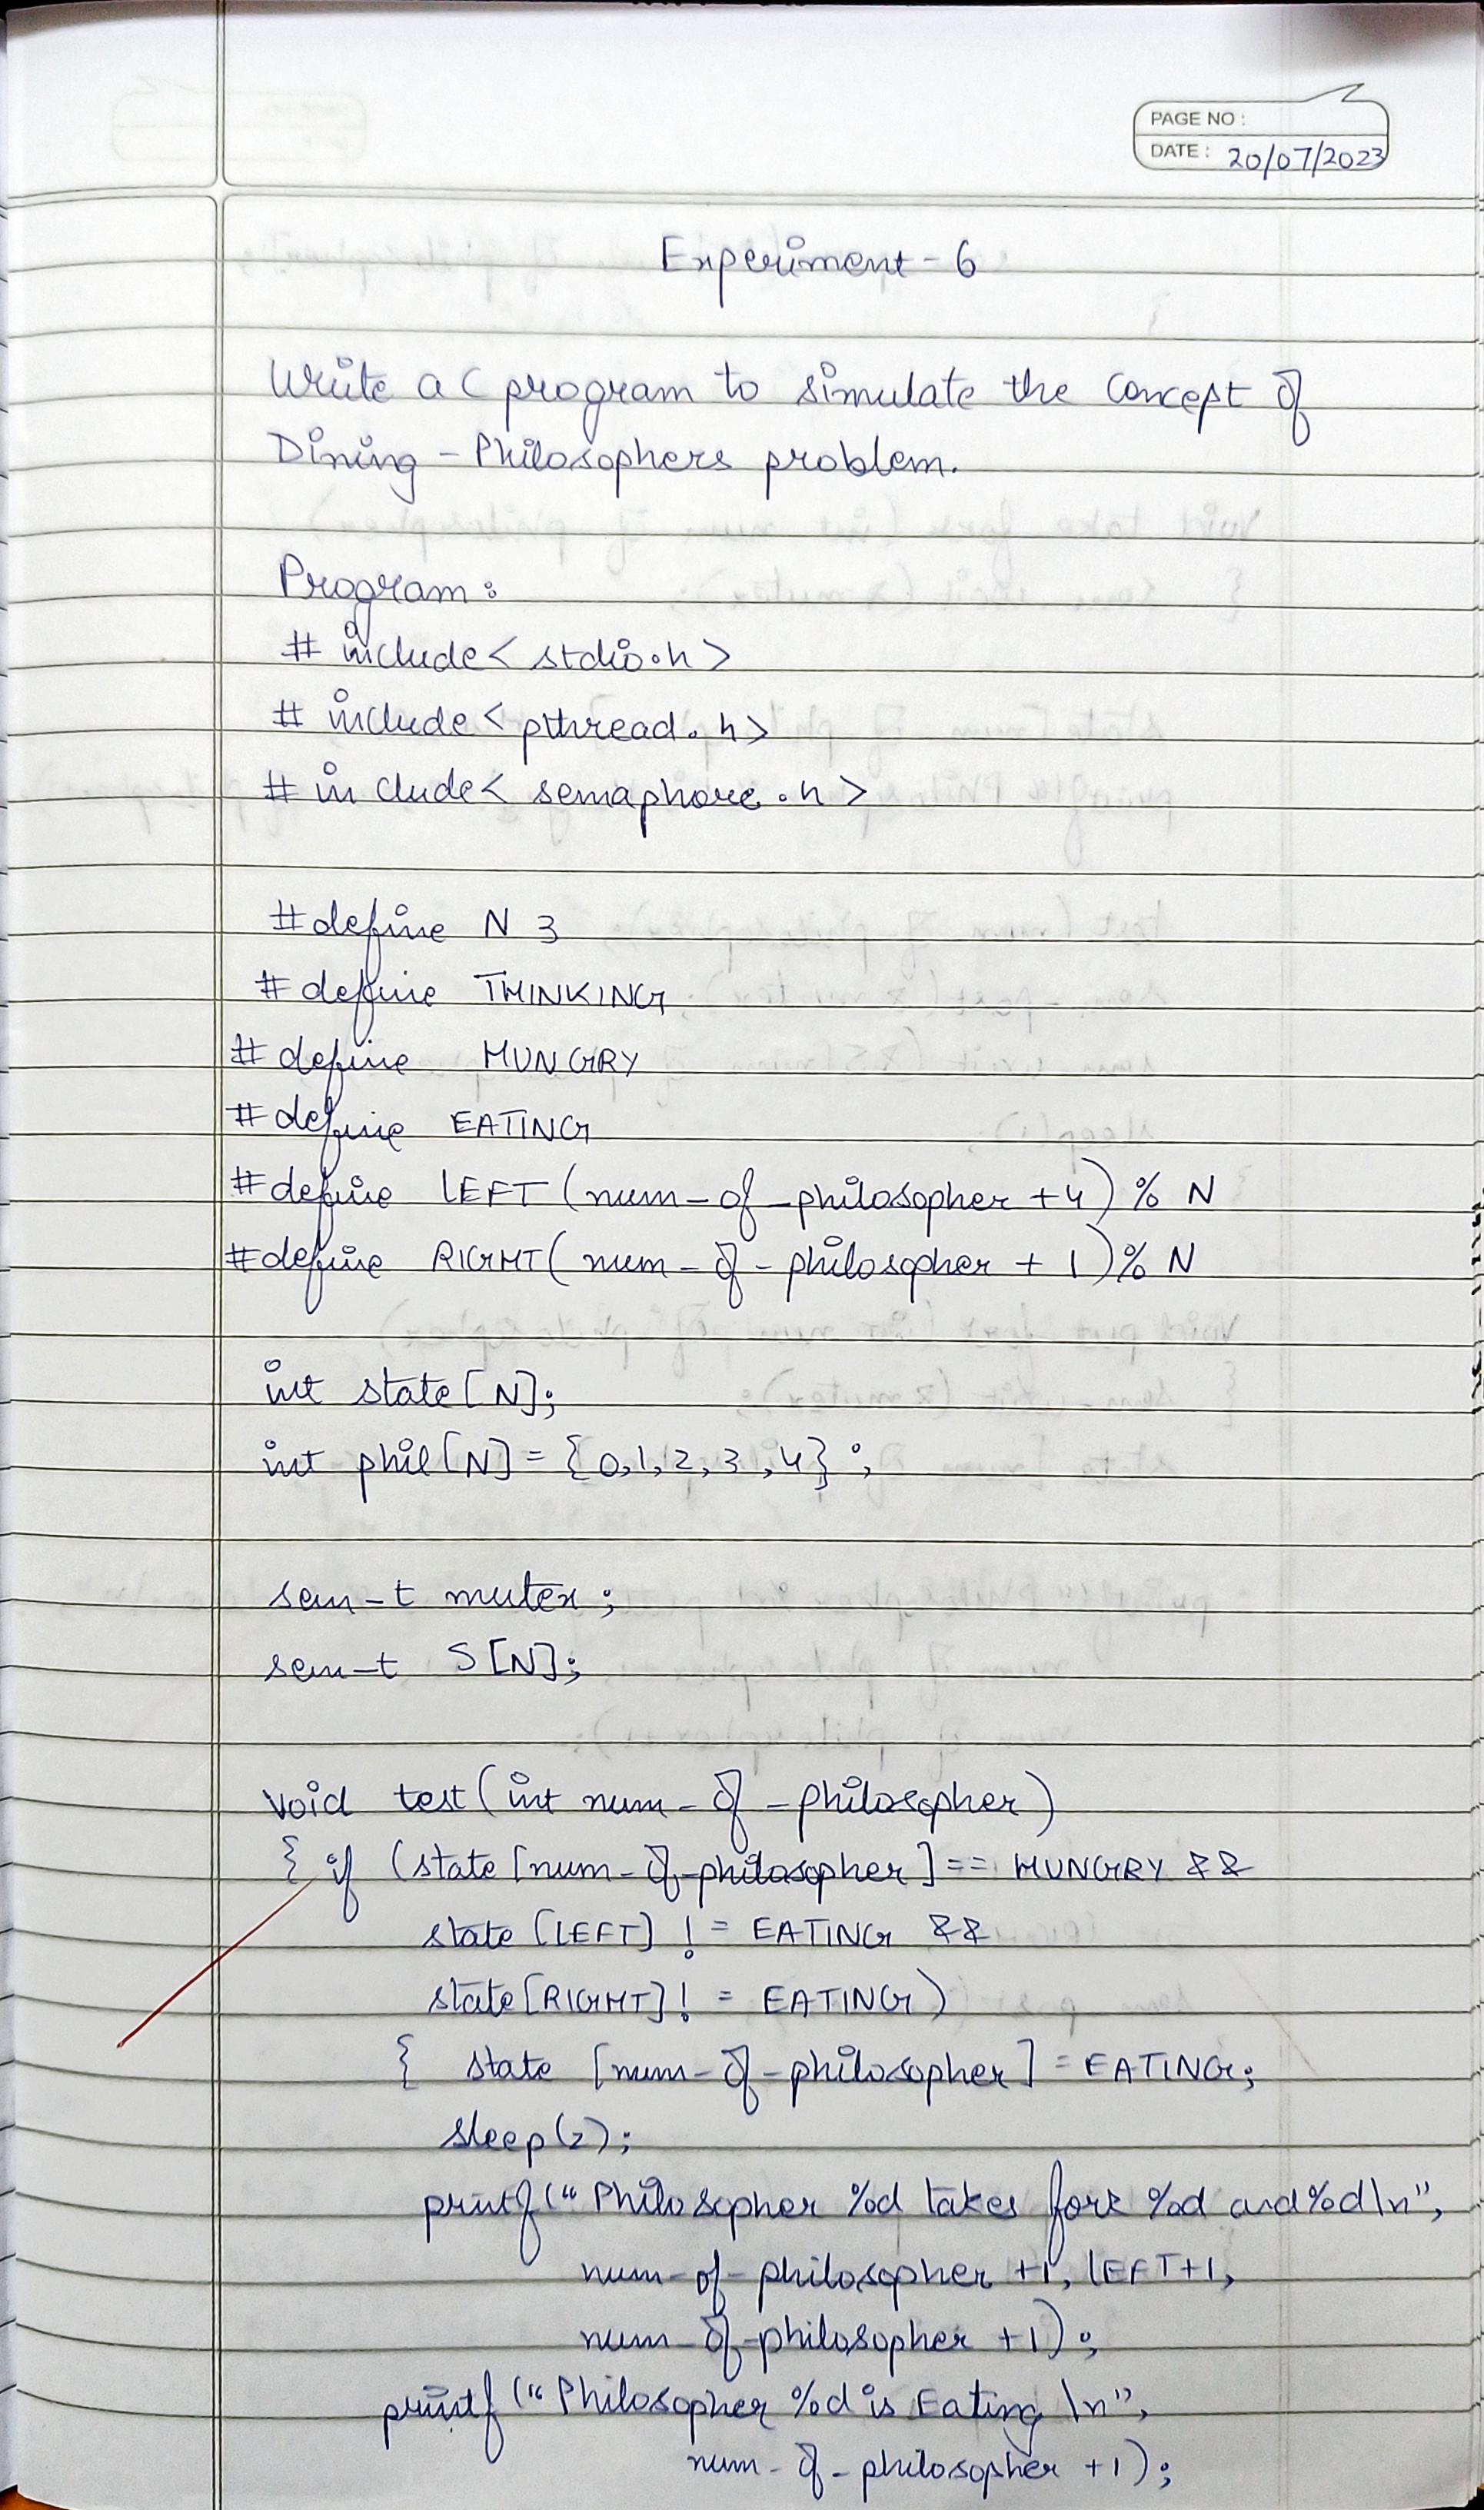 PAGE NO :
DATE : 20/07/2023
Experiment - 6
Write a C program to simulate the concept of
Dining - Philosophers problem.
Program :
# include < stdio.h >
# include < pthread.h >
# include < semaphore.h >
#define N 3
#define THINKING
#define HUNGRY
#define EATING
#define LEFT (num_of_philosopher +4) % N
#define RIGHT (num_of_philosopher + 1) % N
int state [N];
int phil [N] = {0,1,2,3,4} ;
sem_t mutex ;
sem_t S [N];
void test (int num_of_philosopher)
{ if (state [num_of_philosopher] == HUNGRY &&
state [LEFT] != EATING &&
state [RIGHT] != EATING)
{ state [num_of_philosopher] = EATING;
sleep(2);
printf (" Philosopher %d takes fork %d and %d\n",
num_of_philosopher +1, LEFT+1,
num_of_philosopher +1);
printf (" Philosopher %d is Eating \n",
num_of_philosopher +1);